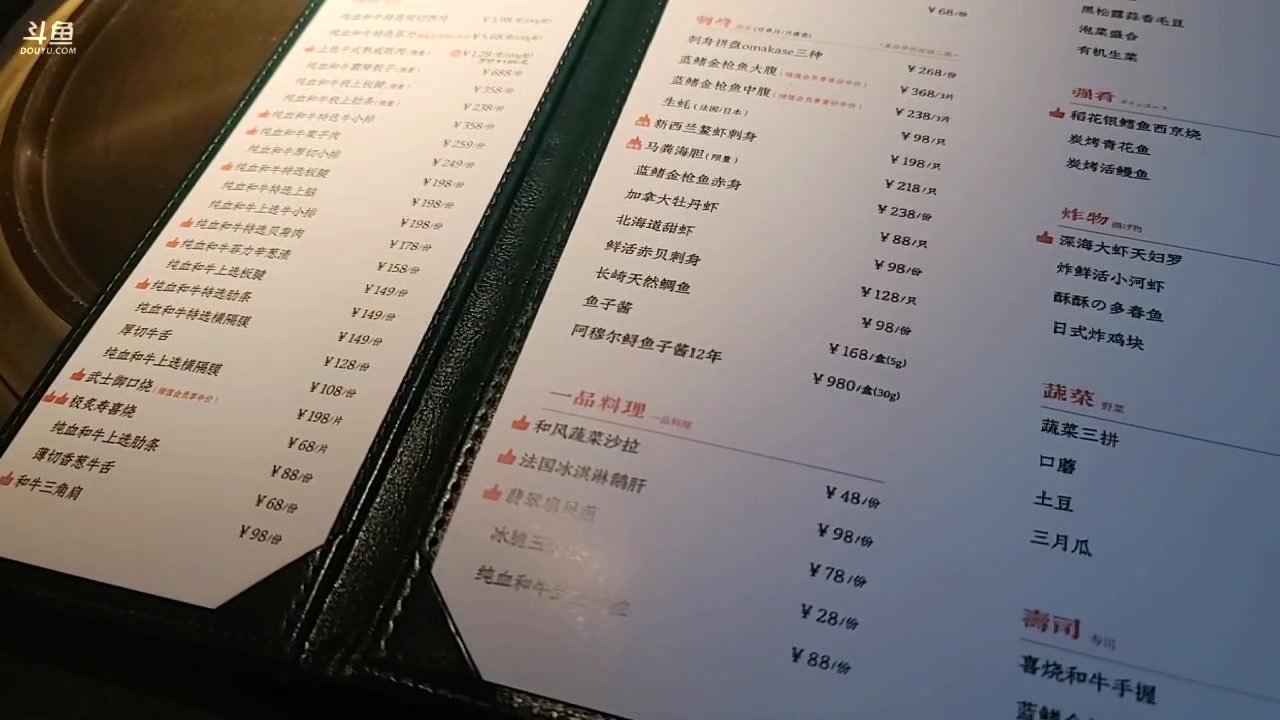 斗鱼
DOUYU.COM
纯血和牛特选厚切西冷
纯血和牛特选菲力
上选干式熟成眼肉(限量)
纯血和牛霜降骰子(限量)
纯血和牛极上板腱(限量)
纯血和牛极上肋条(限量)
纯血和牛特选牛小排
纯血和牛栗子肉
纯血和牛厚切小排
纯血和牛特选板腱
纯血和牛特选上脑
纯血和牛上选牛小排
纯血和牛特选贝身肉
纯血和牛菲力辛葱渍
纯血和牛上选板腱
纯血和牛特选肋条
纯血和牛特选横隔膜
厚切牛舌
纯血和牛上选横隔膜
武士御口烧(储值会员享半价)
极炙寿喜烧
纯血和牛上选肋条
薄切香葱牛舌
和牛三角肩
¥688/份
¥358/份
¥238/份
¥358/份
¥259/份
¥249/份
¥198/份
¥198/份
¥198/份
¥178/份
¥158/份
¥149/份
¥149/份
¥149/份
¥128/份
¥108/份
¥198/片
¥68/片
¥88/份
¥68/份
¥98/份
¥68/份
刺身
刺身拼盘omakase三种 ¥268/份
蓝鳍金枪鱼大腹(储值会员享首份半价) ¥368/3片
蓝鳍金枪鱼中腹(储值会员享首份半价) ¥238/3片
生蚝(法国/日本) ¥98/只
新西兰鳌虾刺身 ¥198/只
马粪海胆(限量) ¥218/只
蓝鳍金枪鱼赤身 ¥238/份
加拿大牡丹虾 ¥88/只
北海道甜虾 ¥98/份
鲜活赤贝刺身 ¥128/只
长崎天然鲷鱼 ¥98/份
鱼子酱 ¥168/盒(5g)
阿穆尔鲟鱼子酱12年 ¥980/盒(30g)
一品料理 一品料理
和风蔬菜沙拉 ¥48/份
法国冰淇淋鹅肝 ¥98/份
¥78/份
¥28/份
纯血和牛 ¥88/份
黑松露蒜香毛豆
泡菜盛合
有机生菜
强肴 メインコース
稻花银鳕鱼西京烧
炭烤青花鱼
炭烤活鳗鱼
炸物 揚げ物
深海大虾天妇罗
炸鲜活小河虾
酥酥の多春鱼
日式炸鸡块
蔬菜 野菜
蔬菜三拼
口蘑
土豆
三月瓜
壽司 寿司
喜烧和牛手握
蓝鳍金